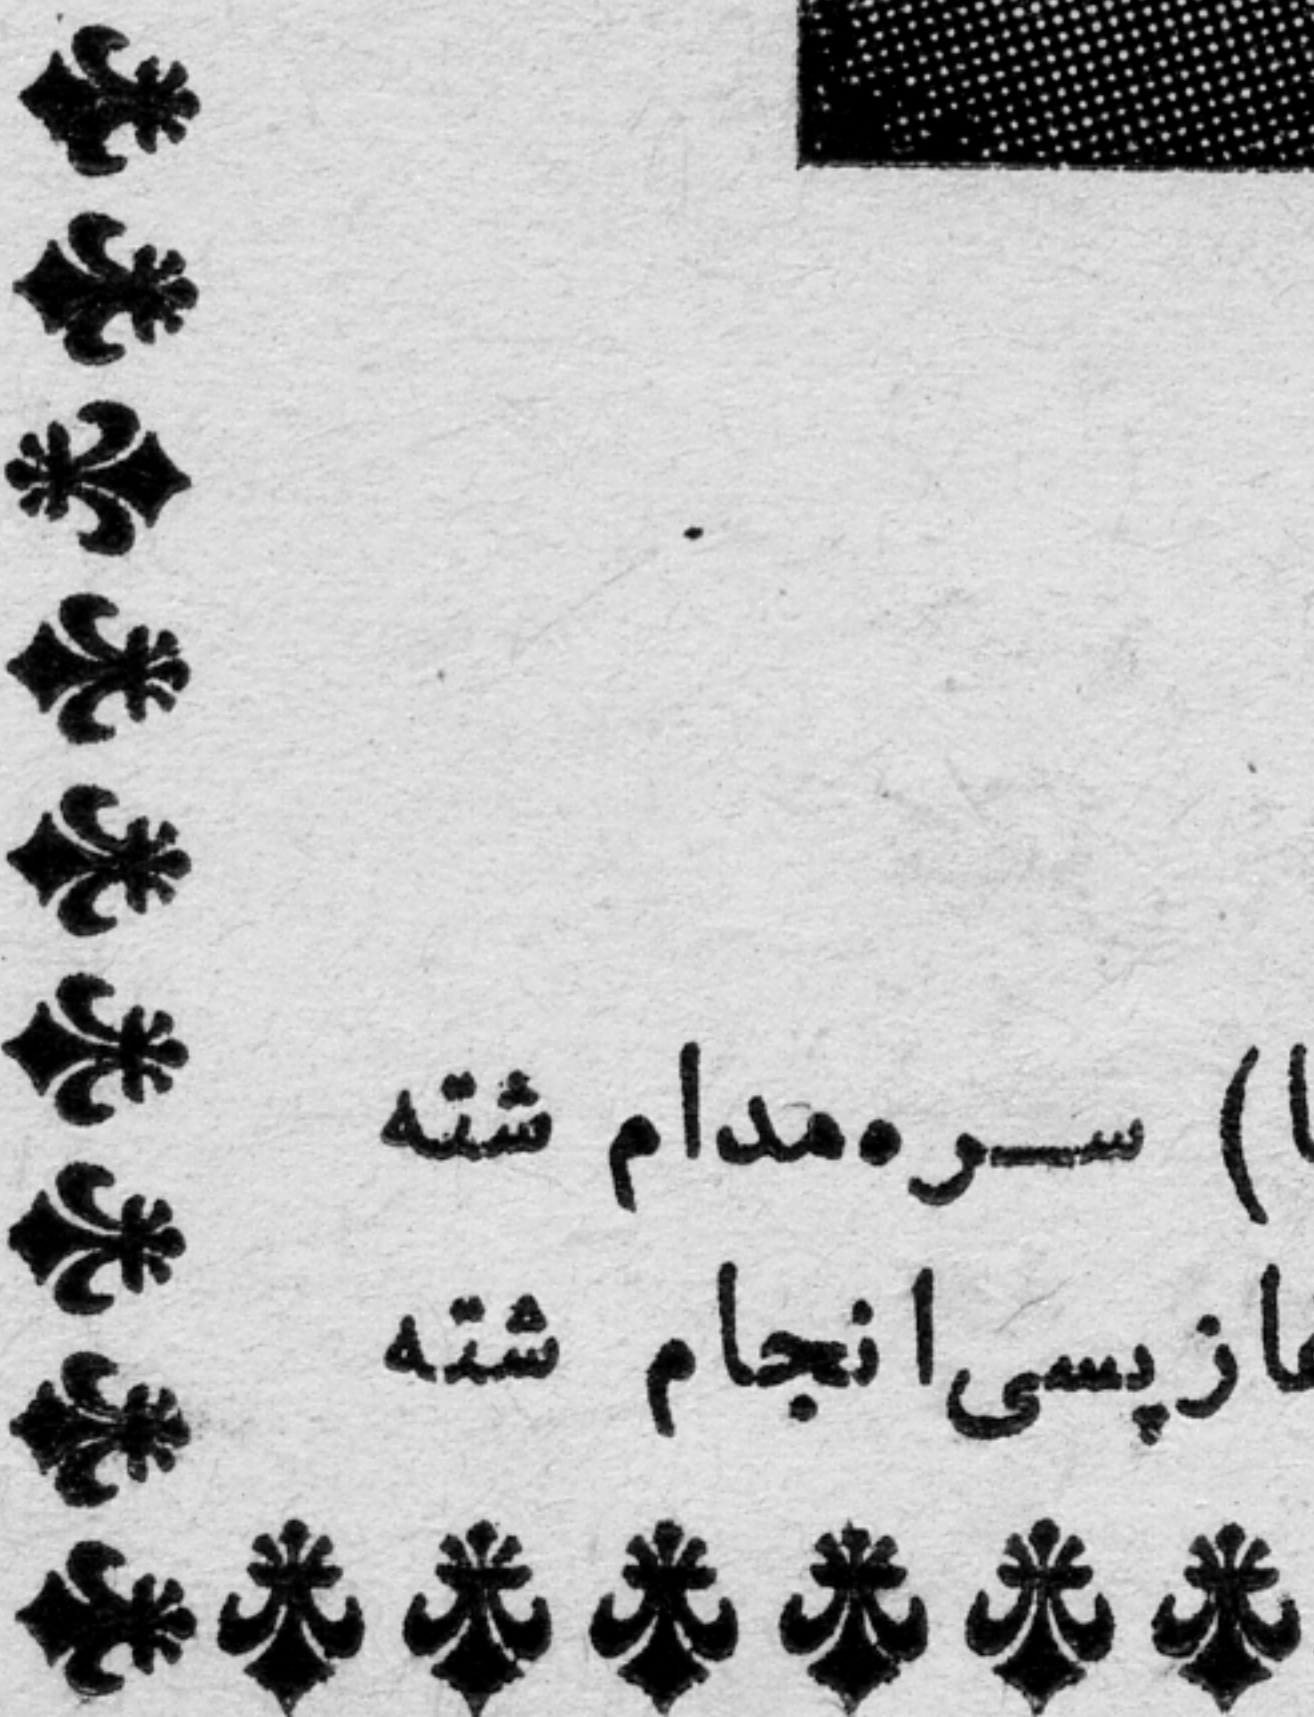 ا) سره مدام شته
از پسی انجام شته